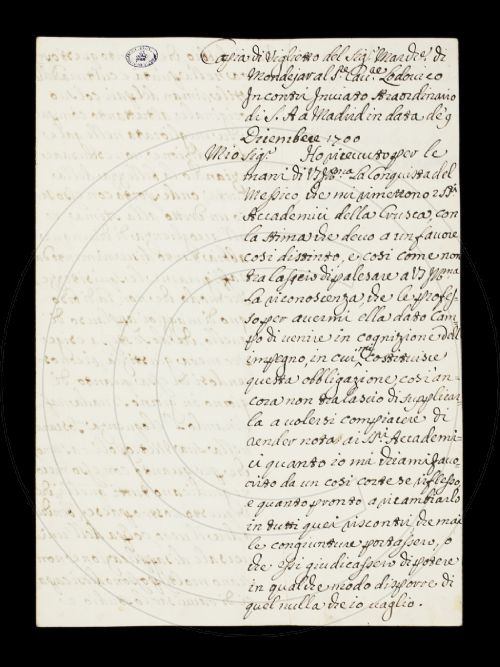 Copia di Viglietto del Sig.r March.e di
Mondejar al S.re Cav.re Lodovico
Incontri Inviato straordinario
di S. A. a Madrid in data de 9
Dicembre 1700
Mio Sig.r Ho ricevuto per le
mani di V. S. Ill.ma La Conquista del
Messico che mi rimettono i SS.ri
Accademici della Crusca, con
la stima che devo a un favore
così distinto, e così come non
tralascio di palesare a V. S. Ill.ma
la riconoscenza, che le profes-
so per avermi ella dato cam-
po di venire in cognizione dell
impegno, in cui mi costituisce
questa obbligazione, così an-
cora non tralascio di supplicar-
la a volersi compiacere di
render nota ai SS.ri Accademi-
ci quanto io mi chiami favo
rito da un così cortese riflesso,
e quanto pronto a ricambiarlo
in tutti quei riscontri che mai
le congiunture portassero, o
che essi giudicassero di potere
in qualche modo disporre di
quel nulla che io vaglio.